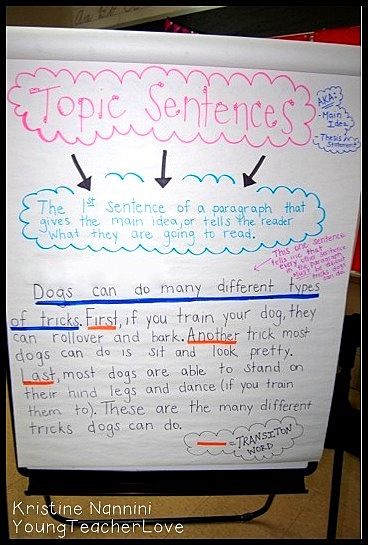 Topic Sentences
AKA:
- Main Idea
- Thesis Statement
The 1st sentence of a paragraph that
gives the main idea, or tells the reader
what they are going to read.
This one sentence
tells me that
every other sentence
in the paragraph
must be about
tricks dogs
can do.
Dogs can do many different types
of tricks. First, if you train your dog, they
can rollover and bark. Another trick most
dogs can do is sit and look pretty.
Last, most dogs are able to stand on
their hind legs and dance (if you train
them to). These are the many different
tricks dogs can do.
= TRANSITION
WORD
Kristine Nannini
YoungTeacherLove